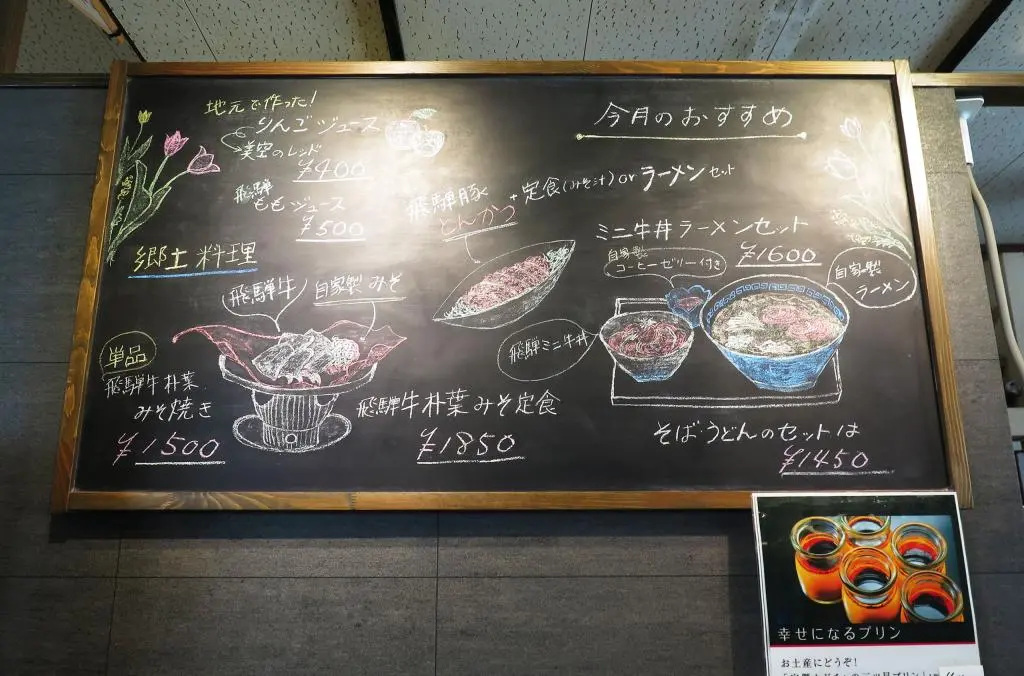 地元で作った!
りんごジュース
美空のレンド
¥400
飛騨
ももジュース
¥500
郷土料理
飛騨牛
自家製みそ
単品
飛騨牛朴葉
みそ焼き
¥1500
飛騨豚
とんかつ
+定食(みそ汁)orラーメンセット
飛騨牛朴葉みそ定食
¥1850
今月のおすすめ
ミニ牛丼ラーメンセット
¥1600
自家製
コーヒーゼリー付き
自家製
ラーメン
飛騨ミニ牛丼
そばうどんのセットは
¥1450
幸せになるプリン
お土産にどうぞ!